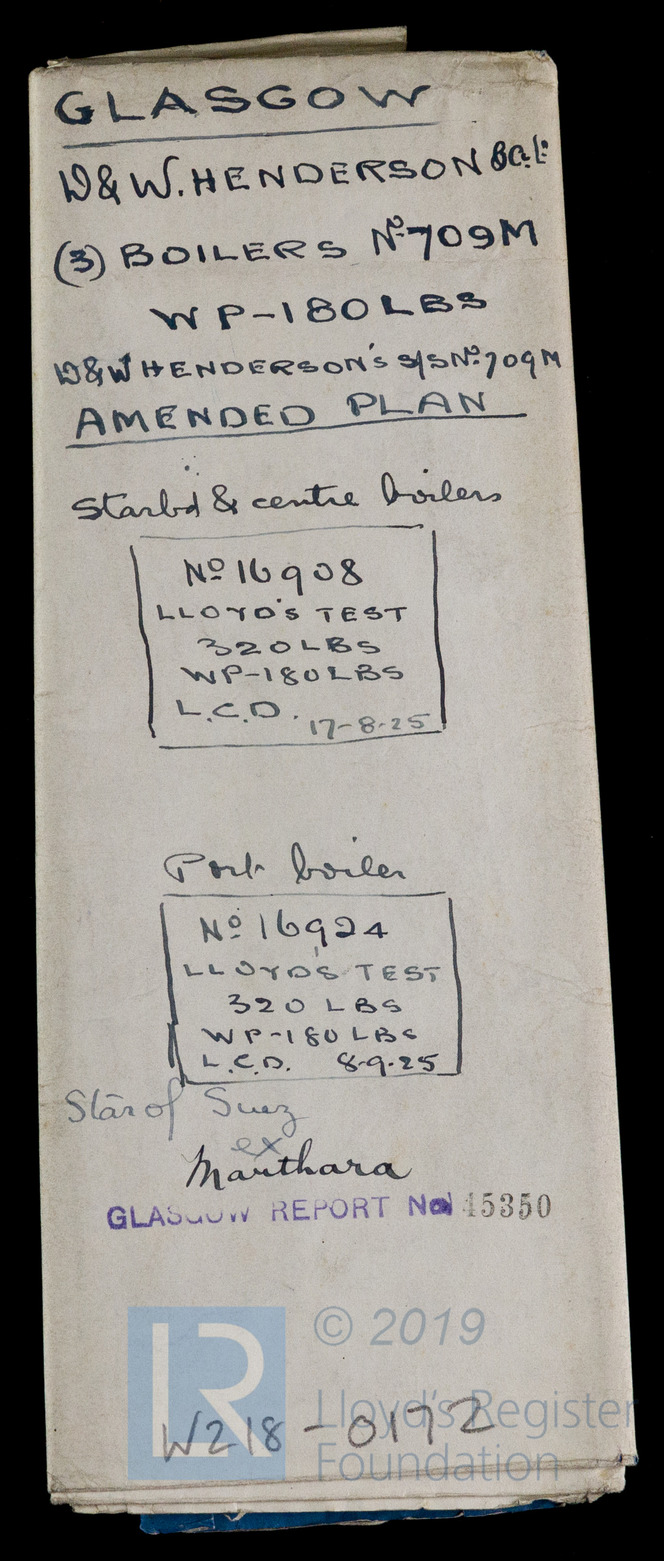 GLASGOW
D & W. HENDERSON & Co. Ld.
(3) BOILERS No 709M
WP-180LBS
D & W HENDERSON'S S/S No 709M
AMENDED PLAN
Starbd & centre boilers
No 16908
LLOYD'S TEST
320LBS
WP-180LBS
L.C.D. 17-8-25
Port boiler
No 16924
LLOYD'S TEST
320 LBS
WP-180LBS
L.C.D. 8-9-25
Star of Suez
ex
Marthara
GLASGOW REPORT No 45350
© 2019
LR
Lloyd's Register
Foundation
W218-0172